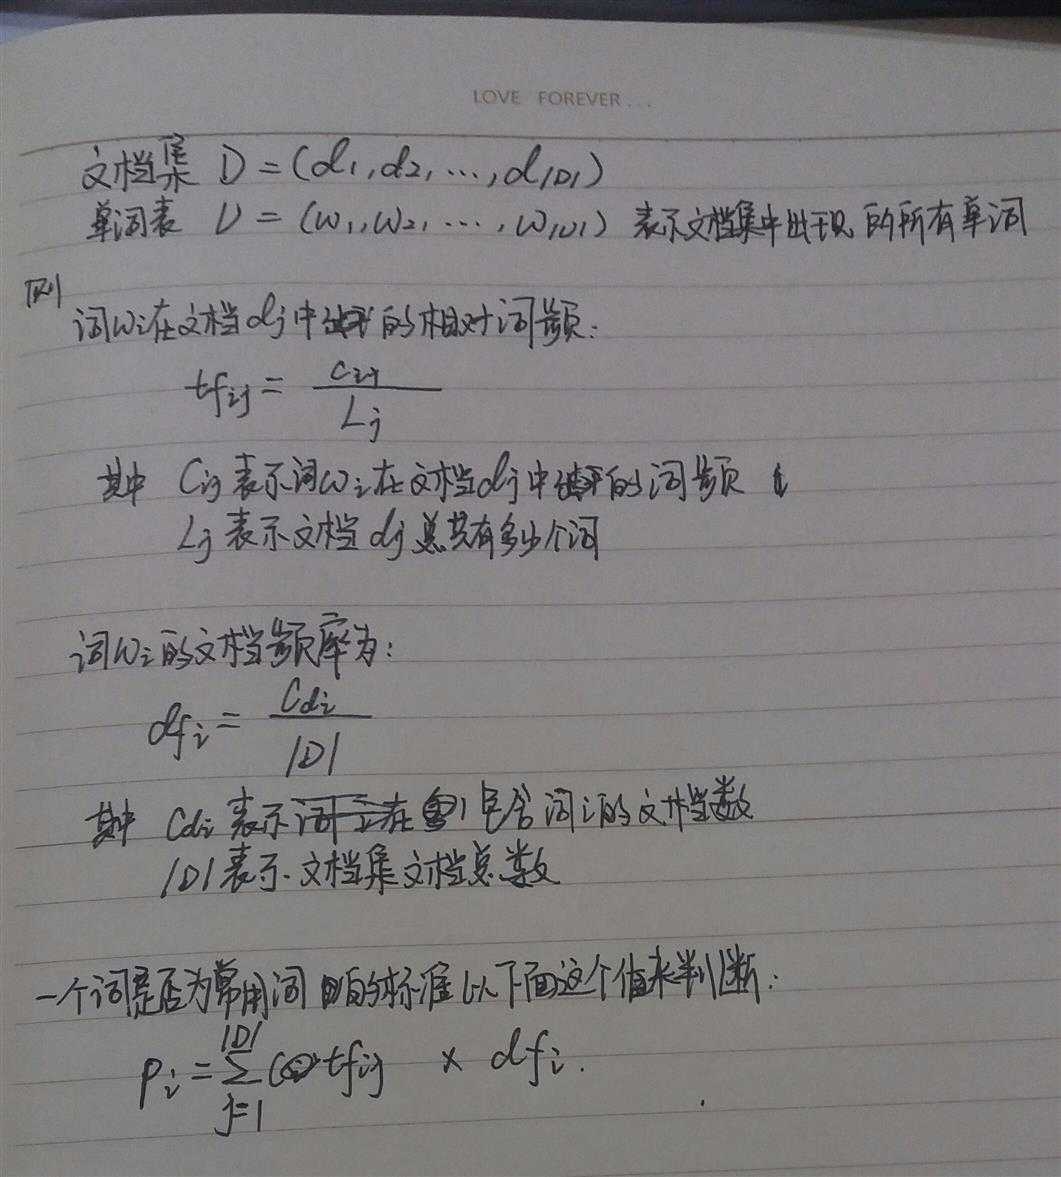 LOVE FOREVER...
文档集 D = (d1, d2, ..., d|D|)
单词表 V = (w1, w2, ..., w|V|) 表示文档集中出现的所有单词
则
词wi在文档dj中的相对词频:
tfij = cij / Lj
其中 Cij 表示词wi在文档dj中的词频
Lj 表示文档dj总共有多少个词
词wi的文档频率为:
dfi = Cdi / |D|
其中 Cdi 表示包含词i的文档数
|D|表示文档集文档总数
一个词是否为常用词的标准以下面这个值来判断:
Pi = Σ j=1 |D| tfij × dfi.